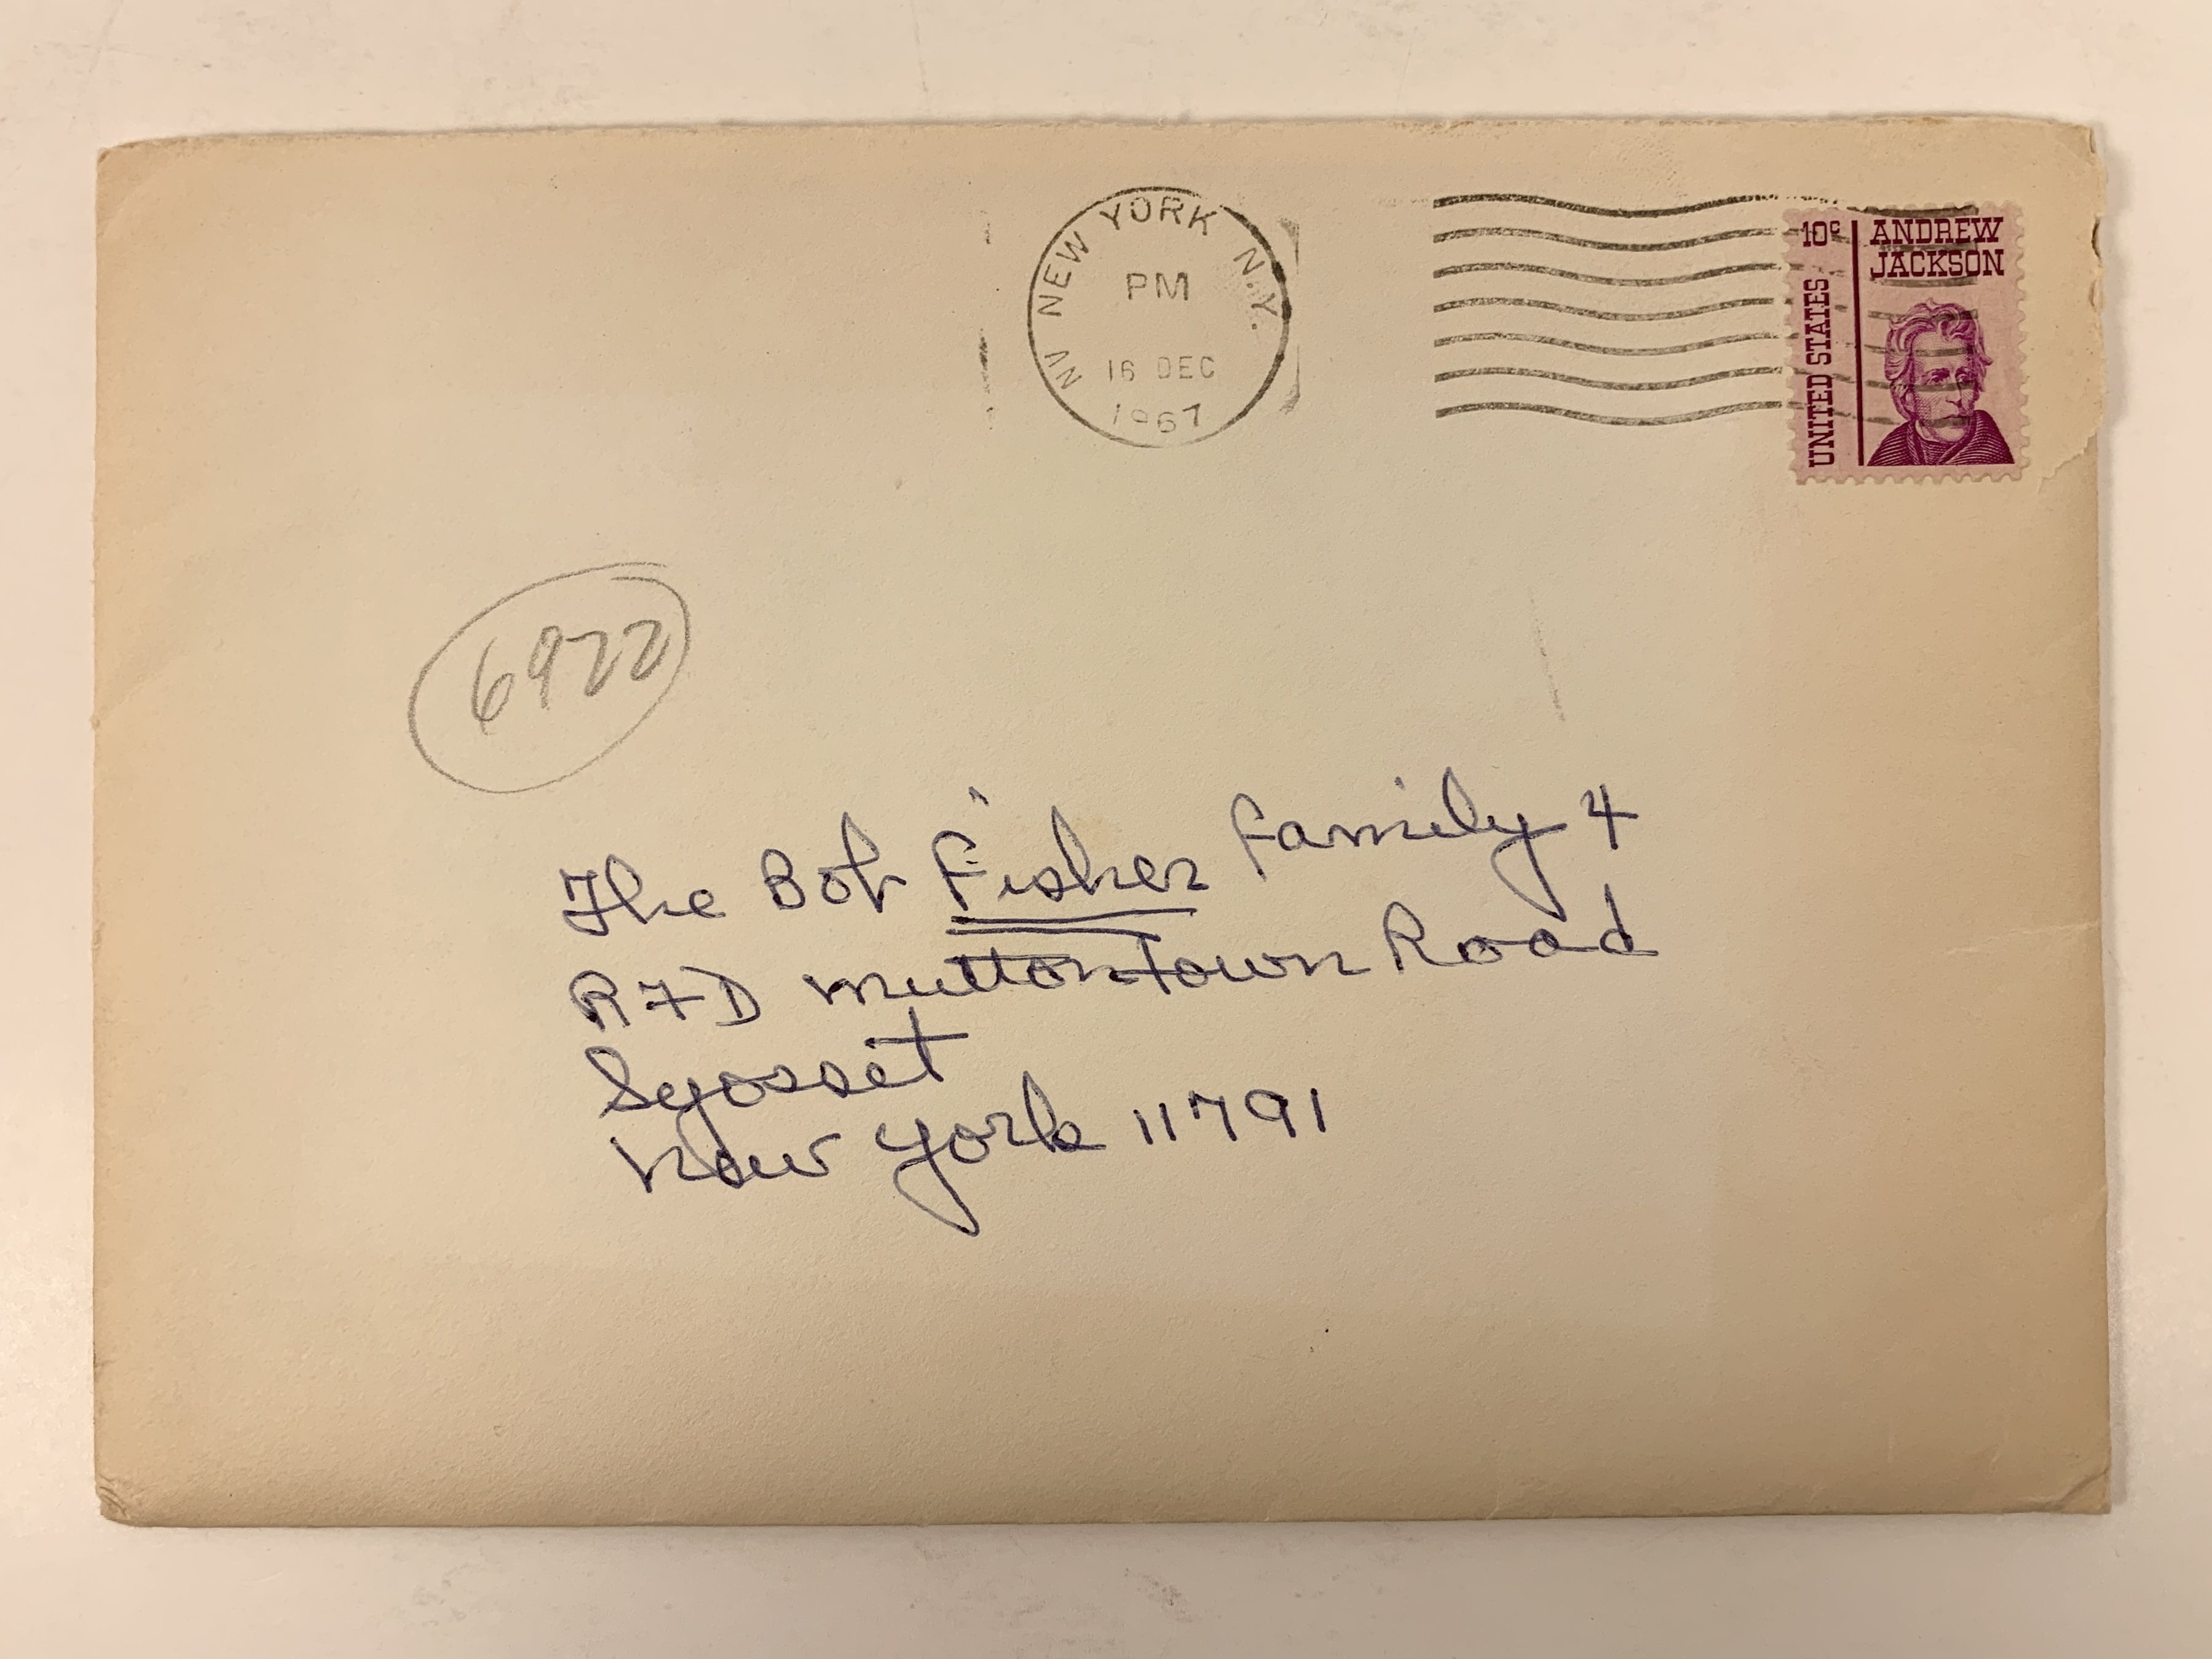 NN NEW YORK N.Y.
PM
16 DEC
1967
10c
ANDREW
JACKSON
UNITED STATES
6922
The Bob Fisher Family 4
RFD Muttontown Road
Syosset
New York 11791